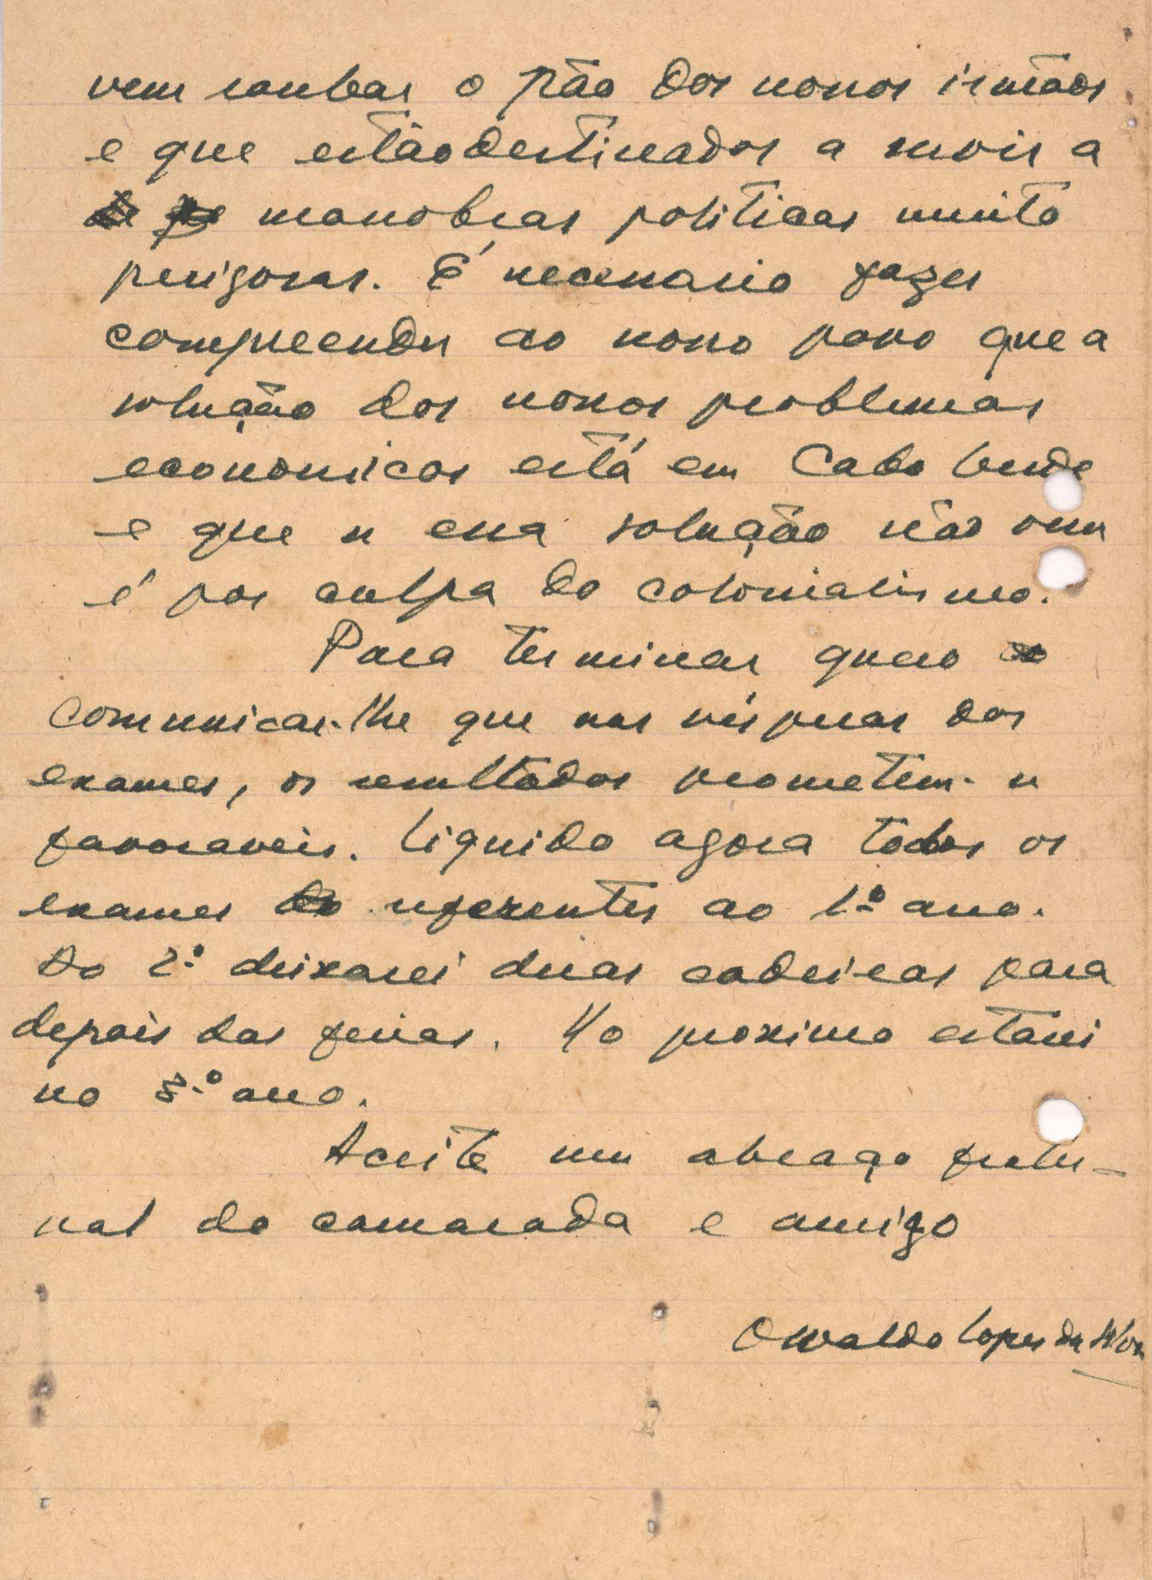 vem roubar o pão dos nossos irmãos
e que estão destinados a servir a
manobras politicas muito
perigosas. É necessario fazer
compreender ao nosso povo que a
solução dos nossos problemas
economicos está em Cabo Verde
e que se essa solução não vem
é por culpa do colonialismo.
Para terminar quero
comunicar-lhe que nas vésperas dos
exames, os resultados prometem-se
favoraveis. Liquido agora todos os
exames referentes ao 1º ano.
Do 2.º deixarei duas cadeiras para
depois das ferias. No proximo estarei
no 3.º ano.
Aceite um abraço frater-
nal do camarada e amigo
Osvaldo Lopes da Silva